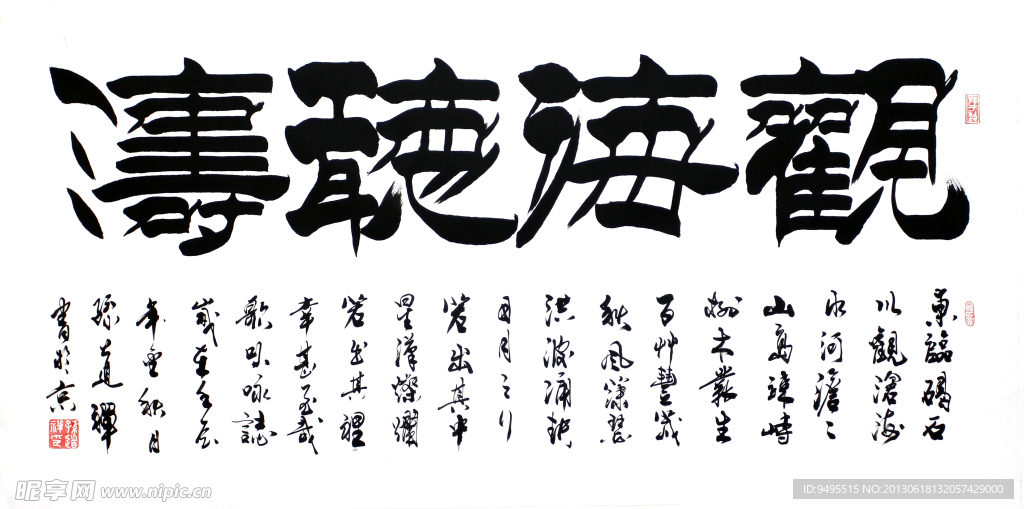 觀海聽濤
東臨碣石
以觀滄海
水河澹々
山島竦峙
樹木叢生
百艸豐茂
秋風蕭瑟
洪波涌起
日月之行
若出其中
星漢燦爛
若出其裡
幸甚至哉
歌以咏誌
歲在
年金秋月
書於京
昵享网 www.nipic.cn
ID:9495515 NO:20130618132057429000